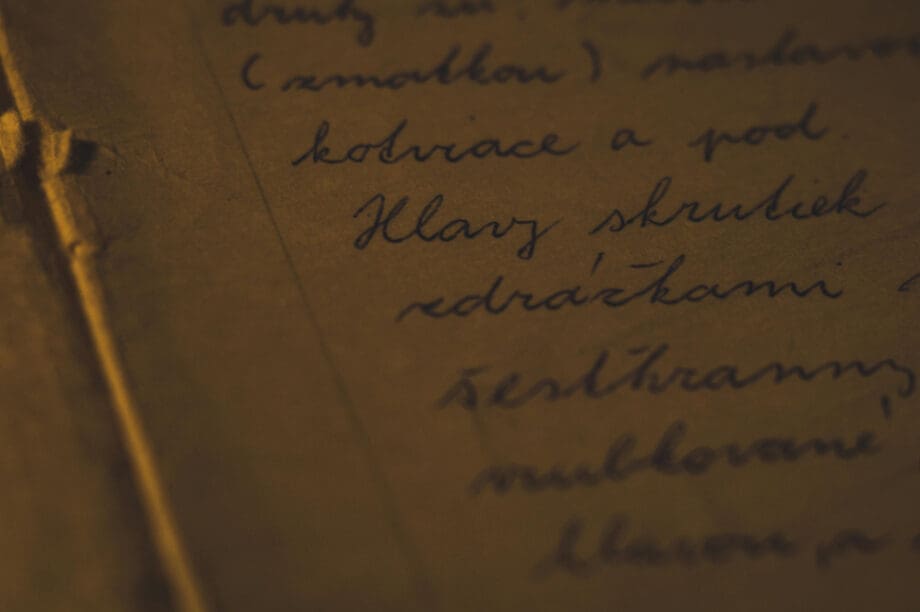 druhy
(zmatkou) nastavov
kotviace a pod.
Hlavy skrutiek
zdrážkami
šesťhranny
vrubkované
hlavou